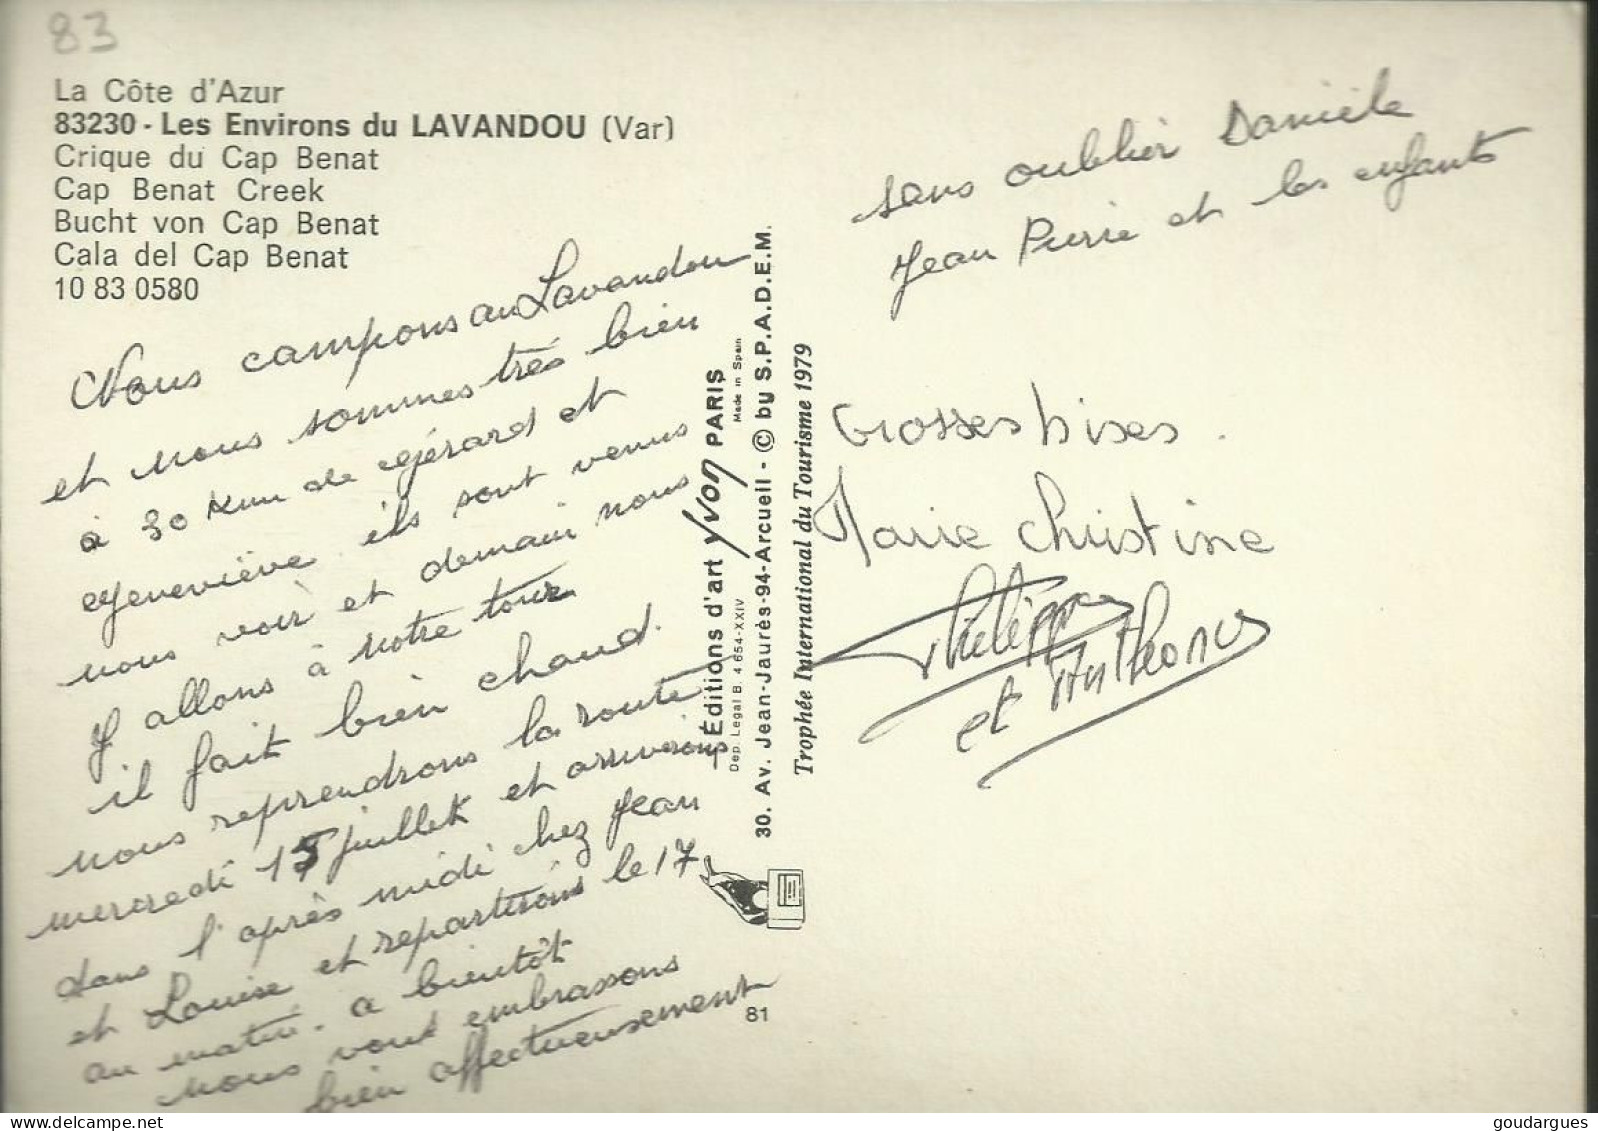 83
La Côte d'Azur
83230 - Les Environs du LAVANDOU (Var)
Crique du Cap Benat
Cap Benat Creek
Bucht von Cap Benat
Cala del Cap Benat
10 83 0580
Nous campons au Lavandou
et nous sommes très bien
à 30 Km de Gérard et
Geneviève ils sont venus
nous voir et demain nous
y allons à notre tour
il fait bien chaud.
nous reprendrons la route
mercredi 15 juillet et arriverons
dans l'après midi chez Jean
et Louise et repartirons le 17
au matin. a bientôt
nous vous embrassons
bien affectueusement
Éditions d'art Yvon PARIS
Made in Spain
Dep. Legal B. 4 654-XXIV
30. Av. Jean-Jaurès-94-Arcueil - © by S.P.A.D.E.M.
Trophée International du Tourisme 1979
81
sans oublier Danièle
Jean Pierre et les enfants
Grosses bises.
Marie Christine
Philippe
et Anthony
goudargues.com